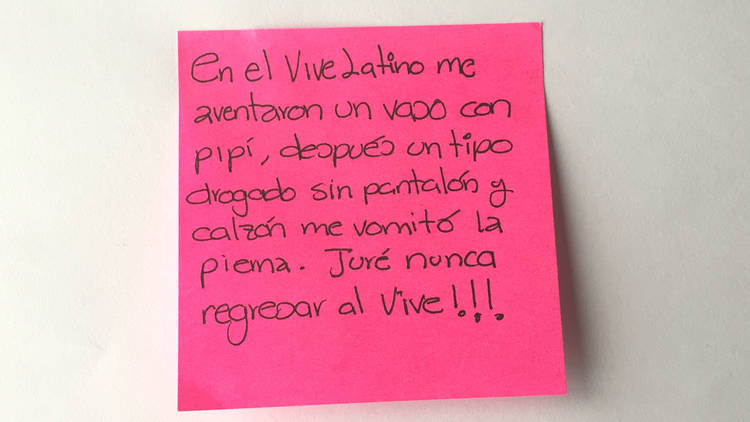 En el Vive Latino me
aventaron un vaso con
pipí, después un tipo
drogado sin pantalón y
calzón me vomitó la
pierna. Juré nunca
regresar al Vive!!!